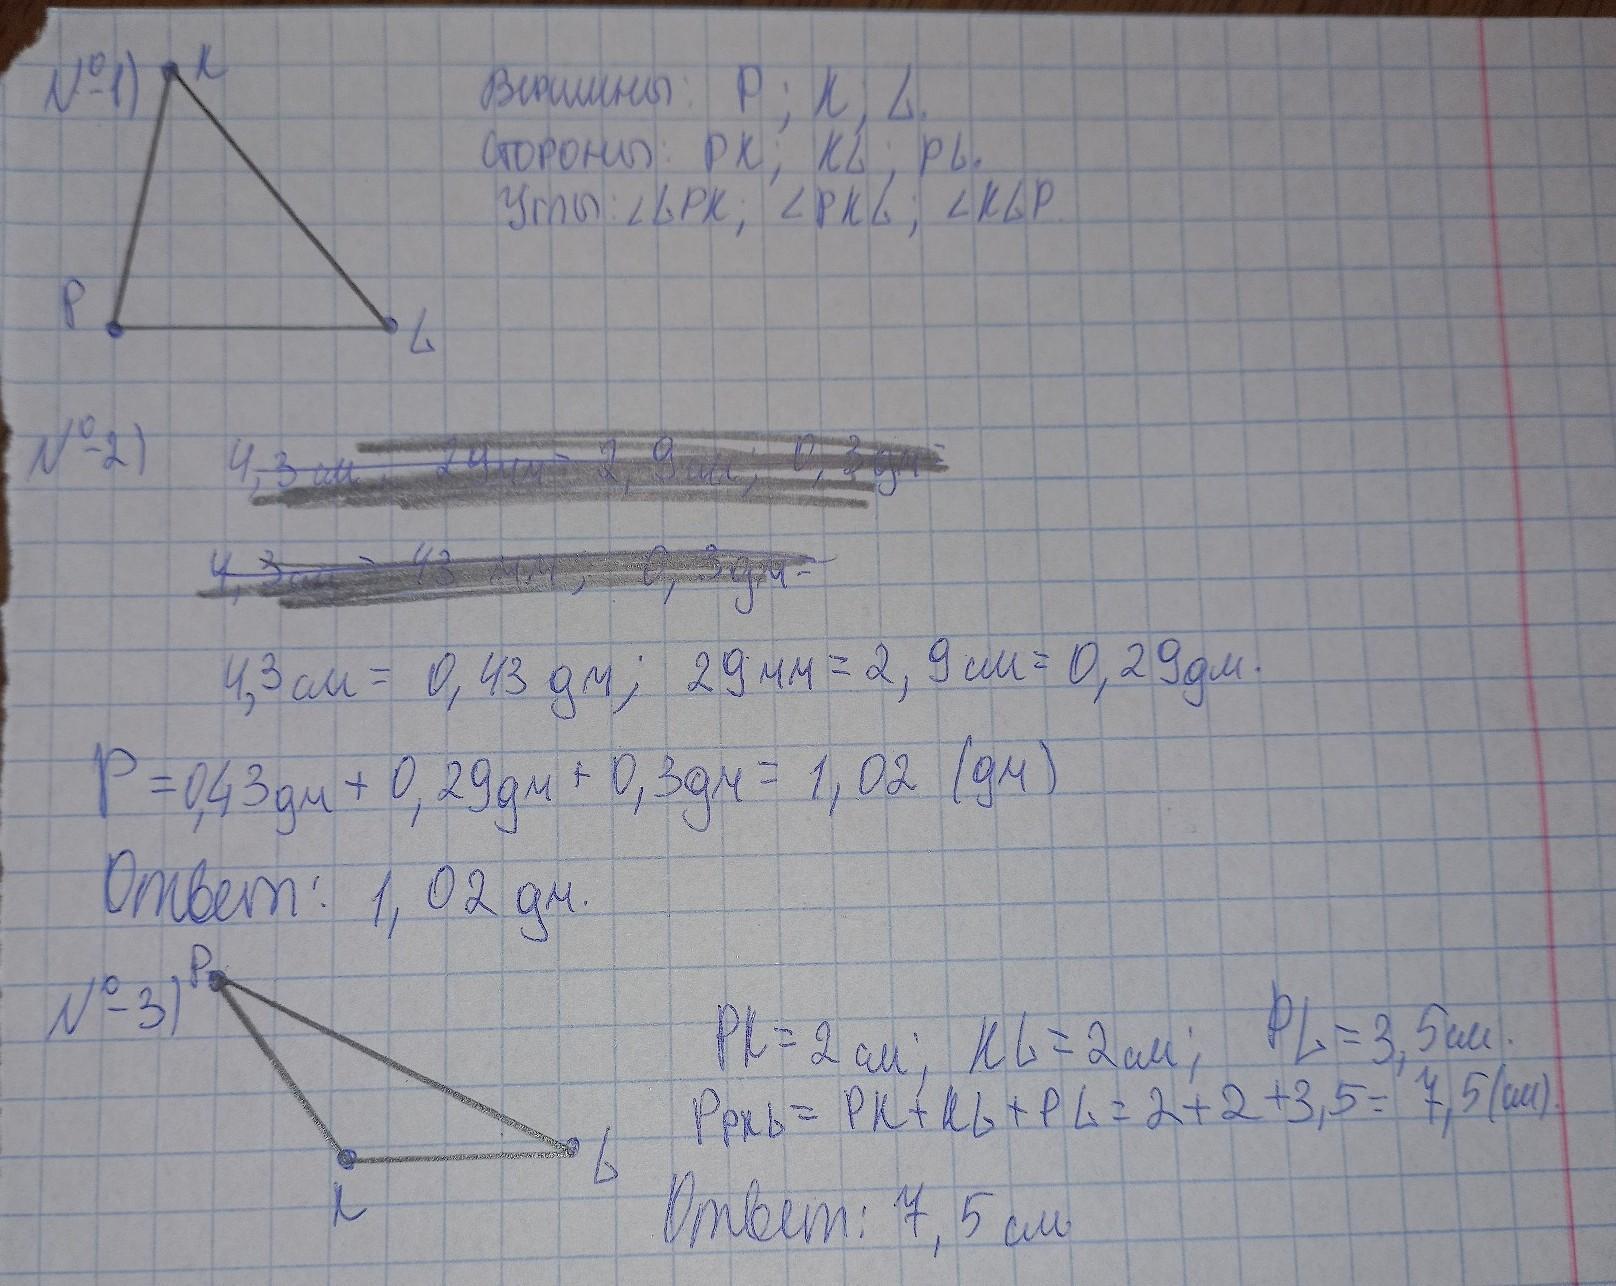 №1) K
Вершины: P; K; L.
Стороны: PK; KL; PL.
Углы: ∠LPK; ∠PKL; ∠KLP.
P
L
№2) 4,3см 29мм = 2,9см; 0,3дм =
4,3см = 43 мм; 0,3дм =
4,3см = 0,43 дм; 29мм = 2,9см = 0,29дм.
P = 0,43дм + 0,29дм + 0,3дм = 1,02 (дм)
Ответ: 1,02 дм.
№3) P
PK = 2см; KL = 2см; PL = 3,5см.
PPKL = PK + KL + PL = 2 + 2 + 3,5 = 7,5(см).
L
K
Ответ: 7,5 см